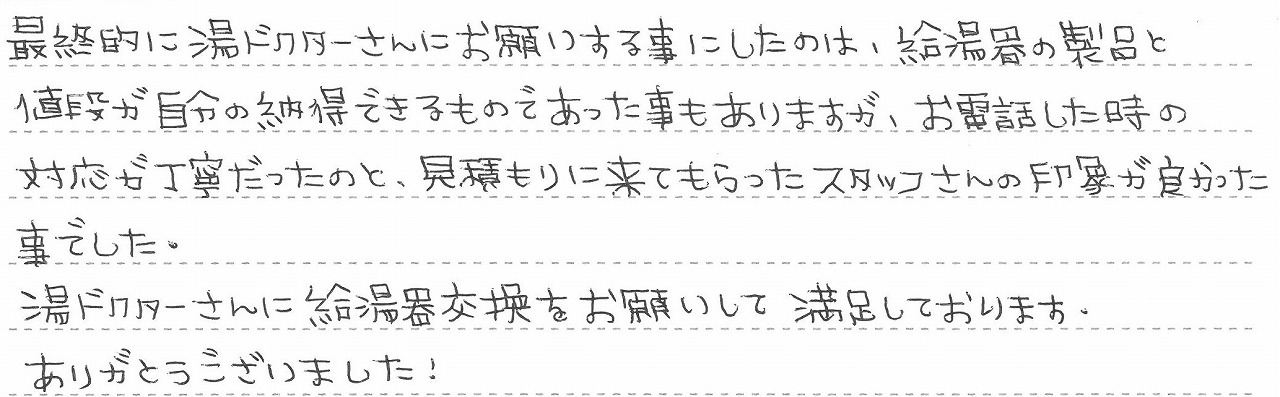 最終的に湯ドクターさんにお願いする事にしたのは、給湯器の製品と
値段が自分の納得できるものであった事もありますが、お電話した時の
対応が丁寧だったのと、見積もりに来てもらったスタッフさんの印象が良かった
事でした。
湯ドクターさんに給湯器交換をお願いして満足しております。
ありがとうございました！